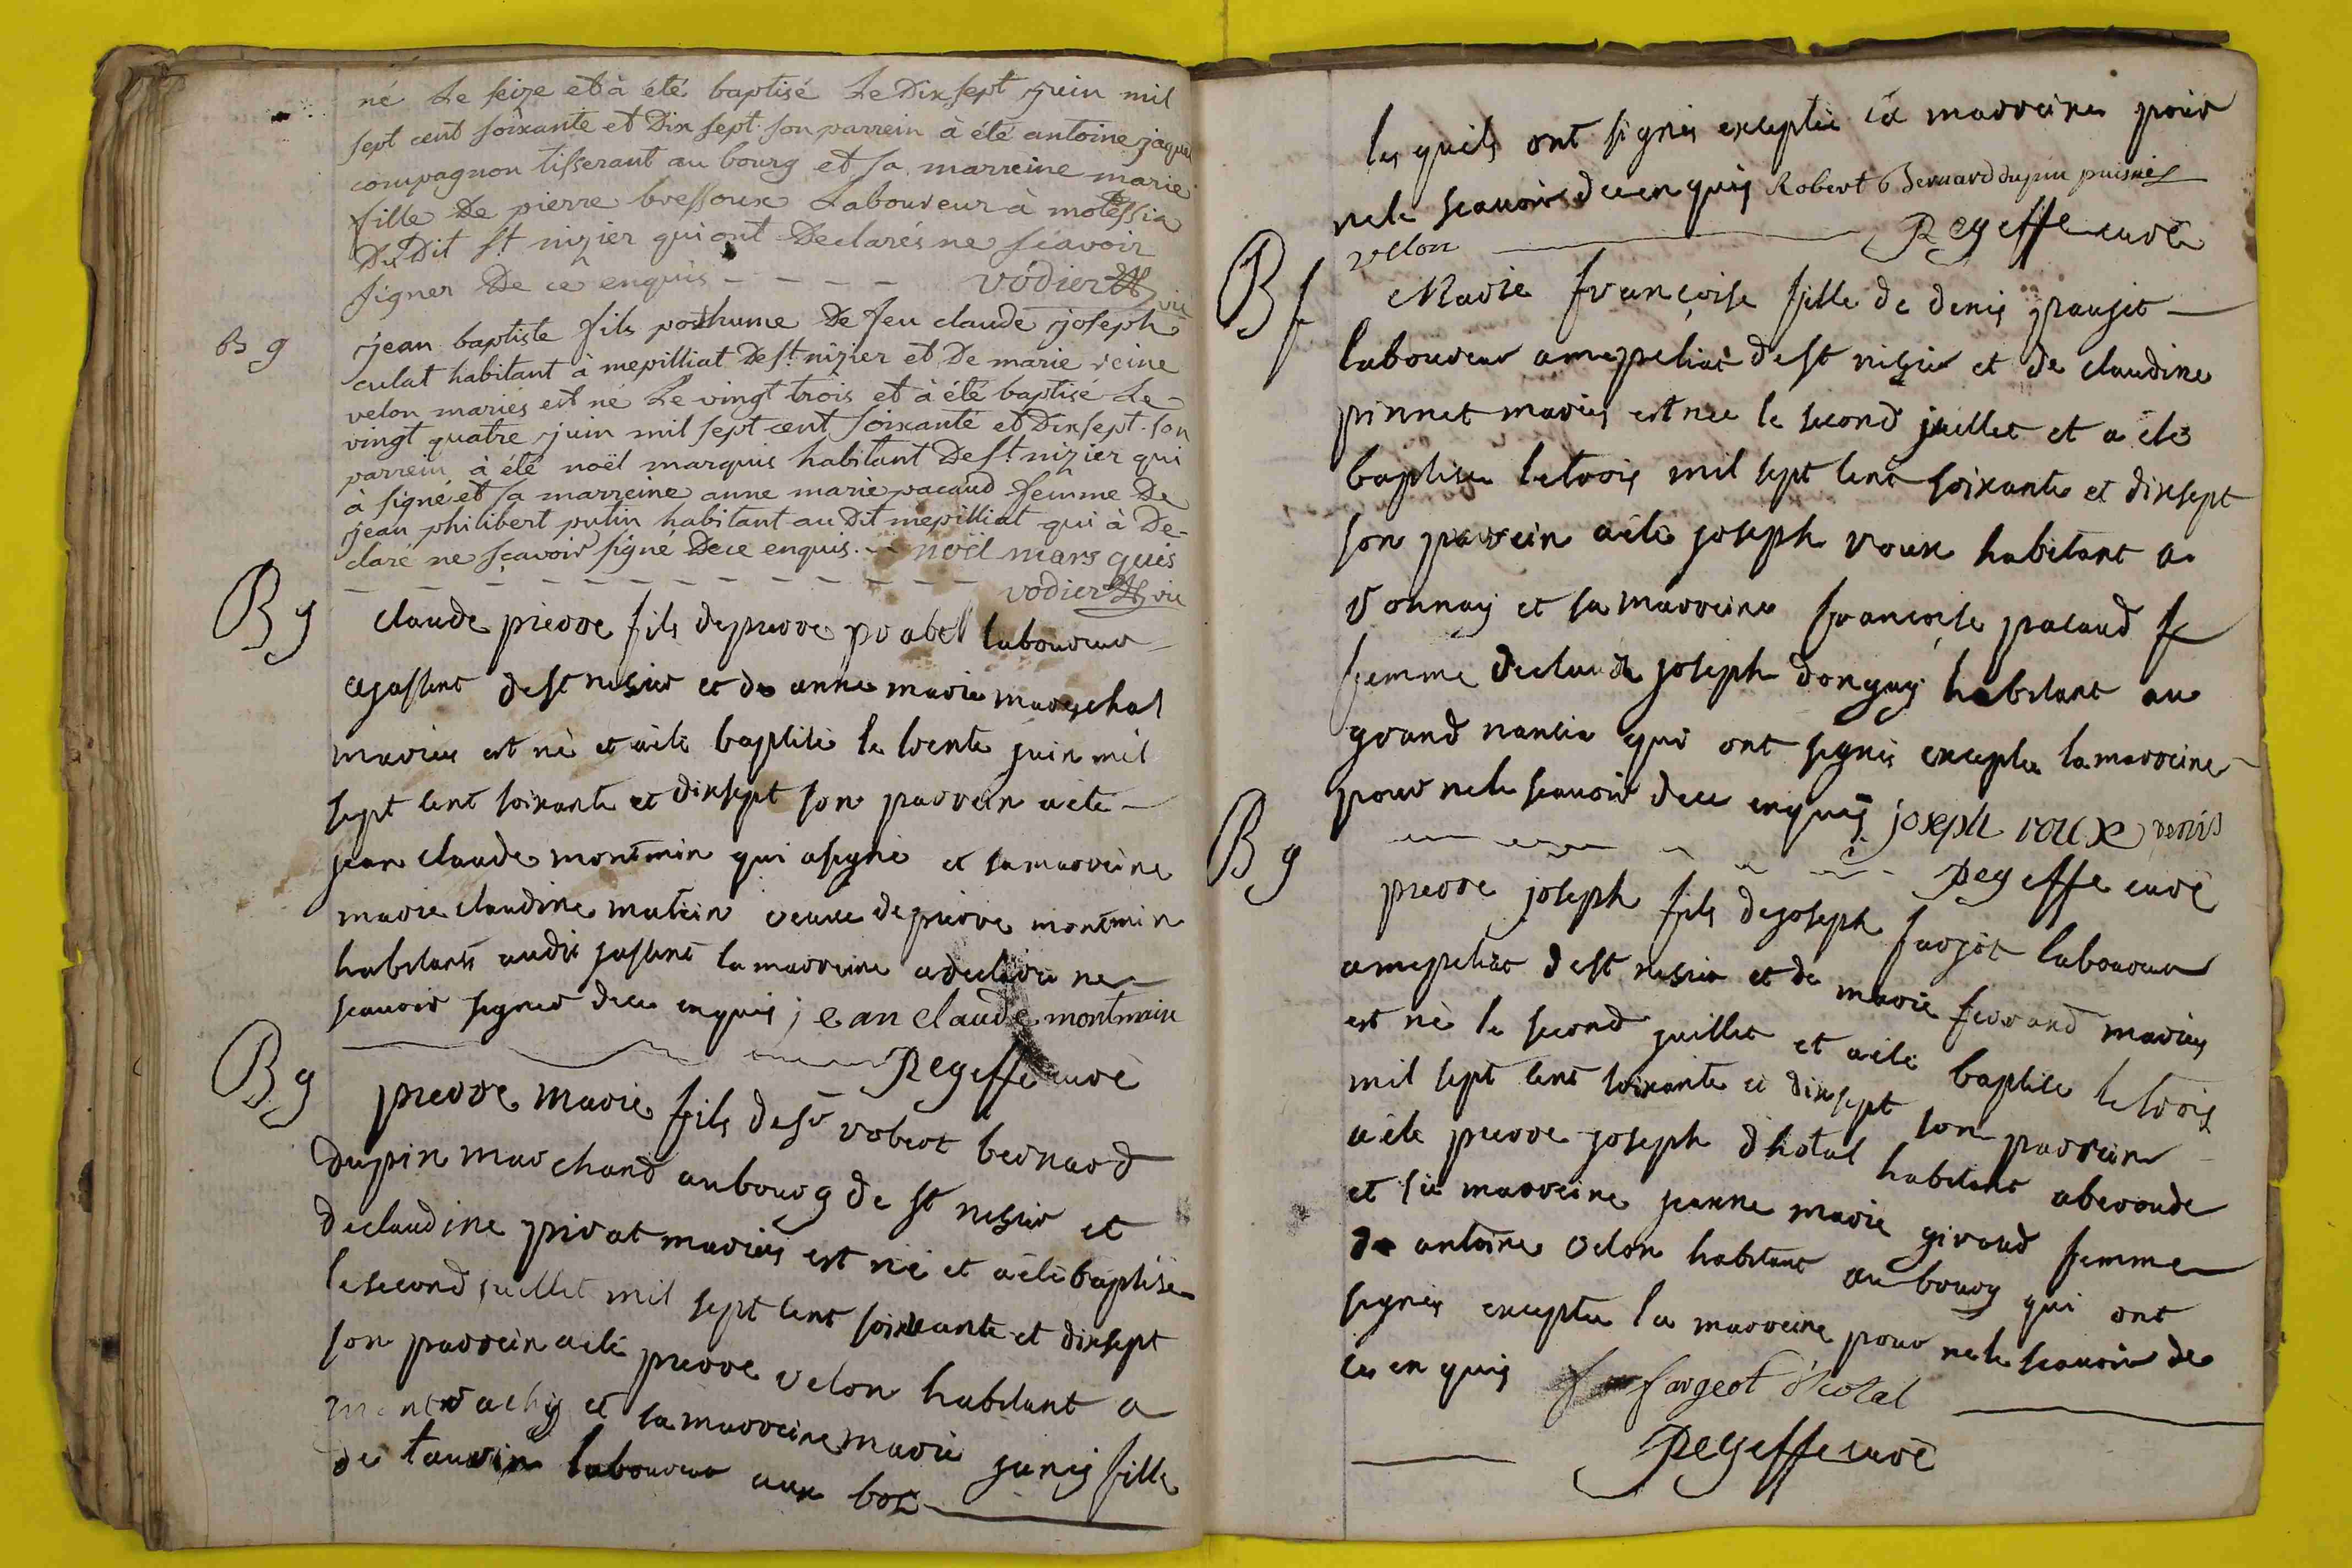 né Le seize et à été baptisé Le Dixsept juin mil
sept cent soixante et Dix sept. son parrein à été antoine jaquet
compagnon tisserant au bourg et sa marreine marie
fille De pierre bressoux Laboureur à molessia
Du Dit st nizier qui ont Declarés ne sçavoir
signer De ce enquis - - - - vodier vic
B g
jean baptiste fils posthume De feu claude joseph
culat habitant à mepilliat De st nizier et De marie reine
velon mariés est né Le vingt trois et à été baptisé Le
vingt quatre juin mil sept cent soixante et Dixsept. son
parrein à été noël marquis habitant De st nizier qui
à signé et sa marreine anne marie pacaud femme De
jean philibert putin habitant au Dit mepilliat qui à De-
claré ne sçavoir signé De ce enquis. - noël mars quis
vodier vic
B g
claude pierre fils de pierre probel laboureur
a jassent de st nisier et de anne marie mareschal
mariés est né et a été baptisé le trente juin mil
sept cent soixante et dixsept son parrein a été
jean claude montmin qui a signé et sa marreine
marie claudine mutin veuve de pierre montmin
habitants audit jassent la marreine a declaré ne
scavoir signer de ce enquis jean claude montmain
Regeffe curé
B g
pierre marie fils de sr robert bernard
dupin marchand au bourg de st nisier et
de claudine privat mariés est né et a été baptisé
le second juillet mil sept cent soixante et dixsept
son parrein a été pierre velon habitant a
et sa marreine marie janis fille
de laboureur aux bois
les quels ont signés exceptée la marreine pour
ne le scavoir de ce enquis Robert Bernard dupin puisné
vellon Regeffe curé
B f
Marie françoise fille de denis paujet
laboureur a mepeliat de st nisier et de claudine
pinnet mariés est née le second juillet et a été
baptisée le trois mil sept cent soixante et dixsept
son parrein a été joseph voux habitant a
vonnay et sa marreine françoise pacaud f
femme de claude joseph donguy habitant au
grand nantia qui ont signés exceptée la marreine
pour ne le scavoir de ce enquis joseph voux
Regeffe curé
B g
pierre joseph fils de joseph farjot laboureur
a mepeliat de st nisier et de marie ferrand mariés
est né le second juillet et a été baptisé le trois
mil sept cent soixante et dixsept son parrein
a été pierre joseph dhotal habitant a beroude
et sa marreine jeanne marie giroud femme
de antoine velon habitant au bourg qui ont
signés exceptée la marreine pour ne le scavoir de
ce enquis f fargeot d'hotal
Regeffe curé